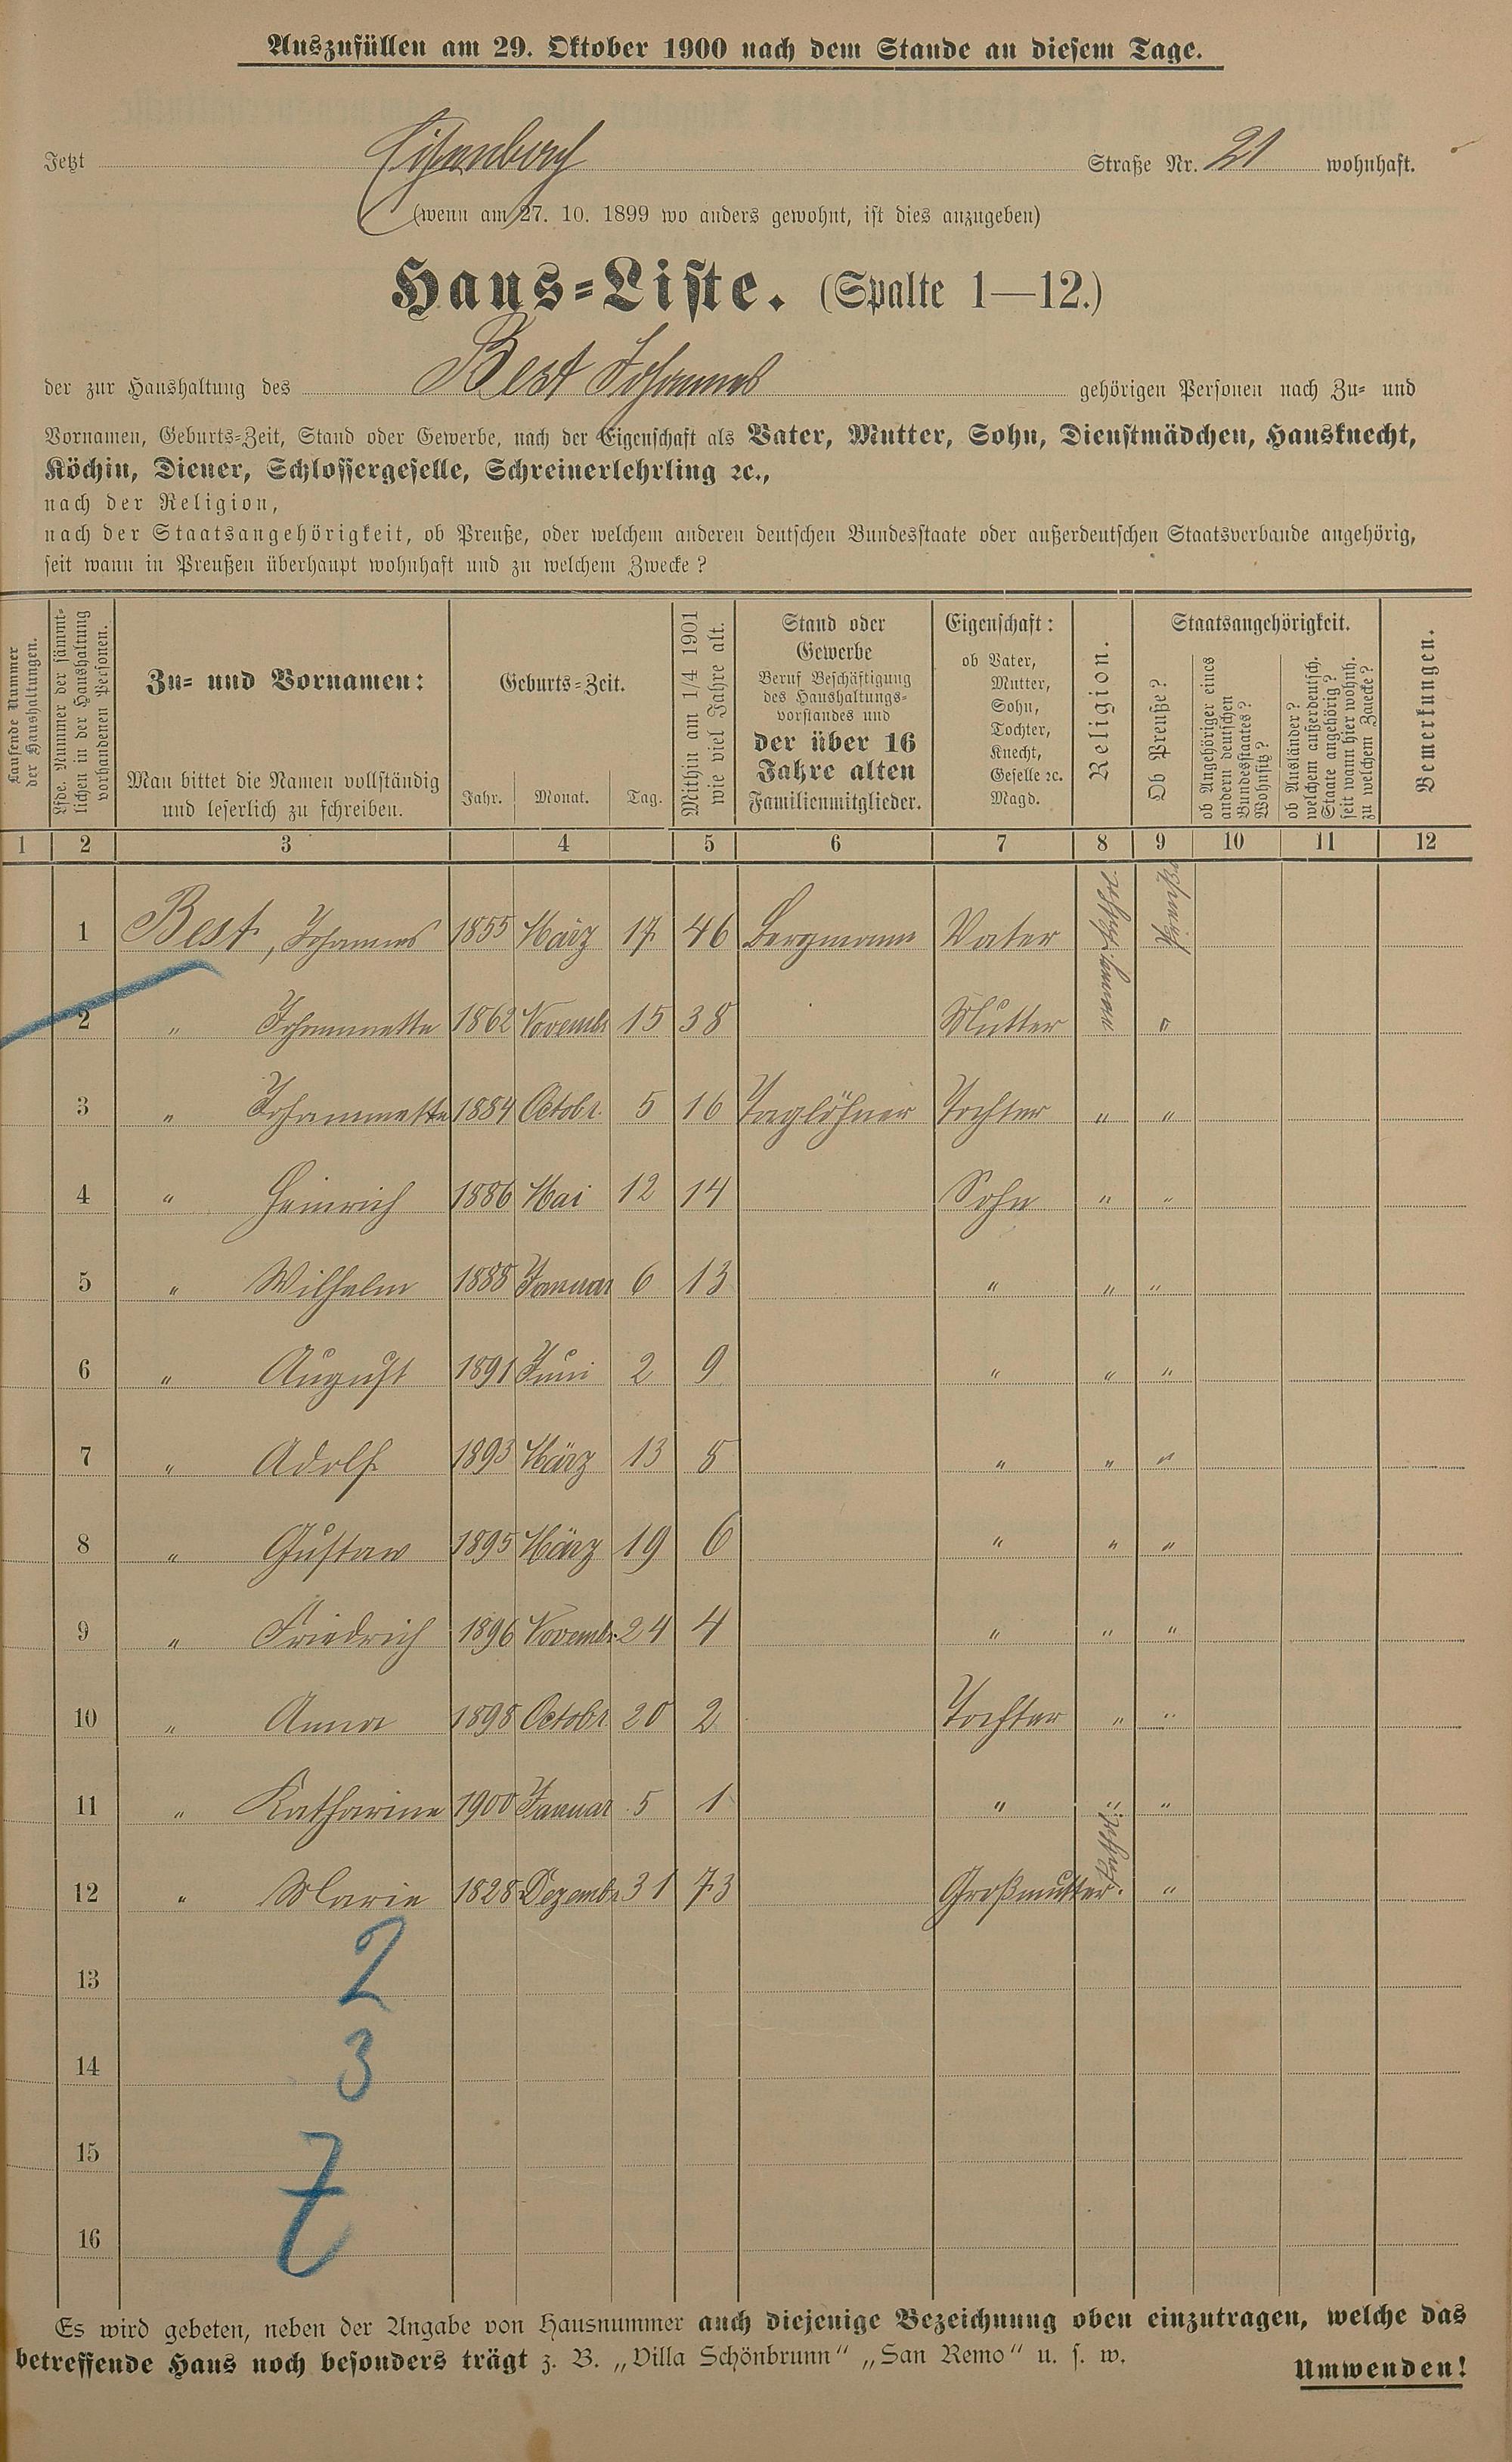 Auszufüllen am 29. Oktober 1900 nach dem Stande an diesem Tage.
Jetzt Straße Nr. 21 wohnhaft.
(wenn am 27. 10. 1899 wo anders gewohnt, ist dies anzugeben)
Haus-Liste. (Spalte 1—12.)
der zur Haushaltung des Best Johannes gehörigen Personen nach Zu- und
Vornamen, Geburts-Zeit, Stand oder Gewerbe, nach der Eigenschaft als Vater, Mutter, Sohn, Dienstmädchen, Hausknecht,
Köchin, Diener, Schlossergeselle, Schreinerlehrling ꝛc.,
nach der Religion,
nach der Staatsangehörigkeit, ob Preuße, oder welchem anderen deutschen Bundesstaate oder außerdeutschen Staatsverbande angehörig,
seit wann in Preußen überhaupt wohnhaft und zu welchem Zwecke?
Laufende Nummer
der Haushaltungen.
Lfde. Nummer der sämmt-
lichen in der Haushaltung
vorhandenen Personen.
Zu- und Vornamen:
Man bittet die Namen vollständig
und leserlich zu schreiben.
Geburts-Zeit.
Jahr. Monat. Tag.
Mithin am 1/4 1901
wie viel Jahre alt.
Stand oder
Gewerbe
Beruf Beschäftigung
des Haushaltungs-
vorstandes und
der über 16
Jahre alten
Familienmitglieder.
Eigenschaft:
ob Vater,
Mutter,
Sohn,
Tochter,
Knecht,
Geselle ꝛc.
Magd.
Religion.
Staatsangehörigkeit.
Ob Preuße?
ob Angehöriger eines
andern deutschen
Bundesstaates?
Wohnsitz?
ob Ausländer?
welchem außerdeutsch.
Staate angehörig?
seit wann hier wohnh.
zu welchem Zwecke?
Bemerkungen.
1 2 3 4 5 6 7 8 9 10 11 12
1 Best, Johannes 1855 März 17 46 Bergmann Vater
2 " Johannette 1862 Novembr 15 38 Mutter "
3 " Johannette 1884 Octobr. 5 16 Taglöhner Tochter " "
4 " Heinrich 1886 Mai 12 14 Sohn " "
5 " Wilhelm 1888 Januar 6 13 " " "
6 " August 1891 Juni 2 9 " " "
7 " Adolf 1893 März 13 8 " " "
8 " Gustav 1895 März 19 6 " " "
9 " Friedrich 1896 Novembr. 24 4 " " "
10 " Anna 1898 Octobr. 20 2 Tochter " "
11 " Katharine 1900 Januar 5 1 " " "
12 " Marie 1828 Dezembr 31 73 Großmutter "
13 2
14 3
15
16
Es wird gebeten, neben der Angabe von Hausnummer auch diejenige Bezeichnung oben einzutragen, welche das
betreffende Haus noch besonders trägt z. B. „Villa Schönbrunn“ „San Remo“ u. s. w.
Umwenden!